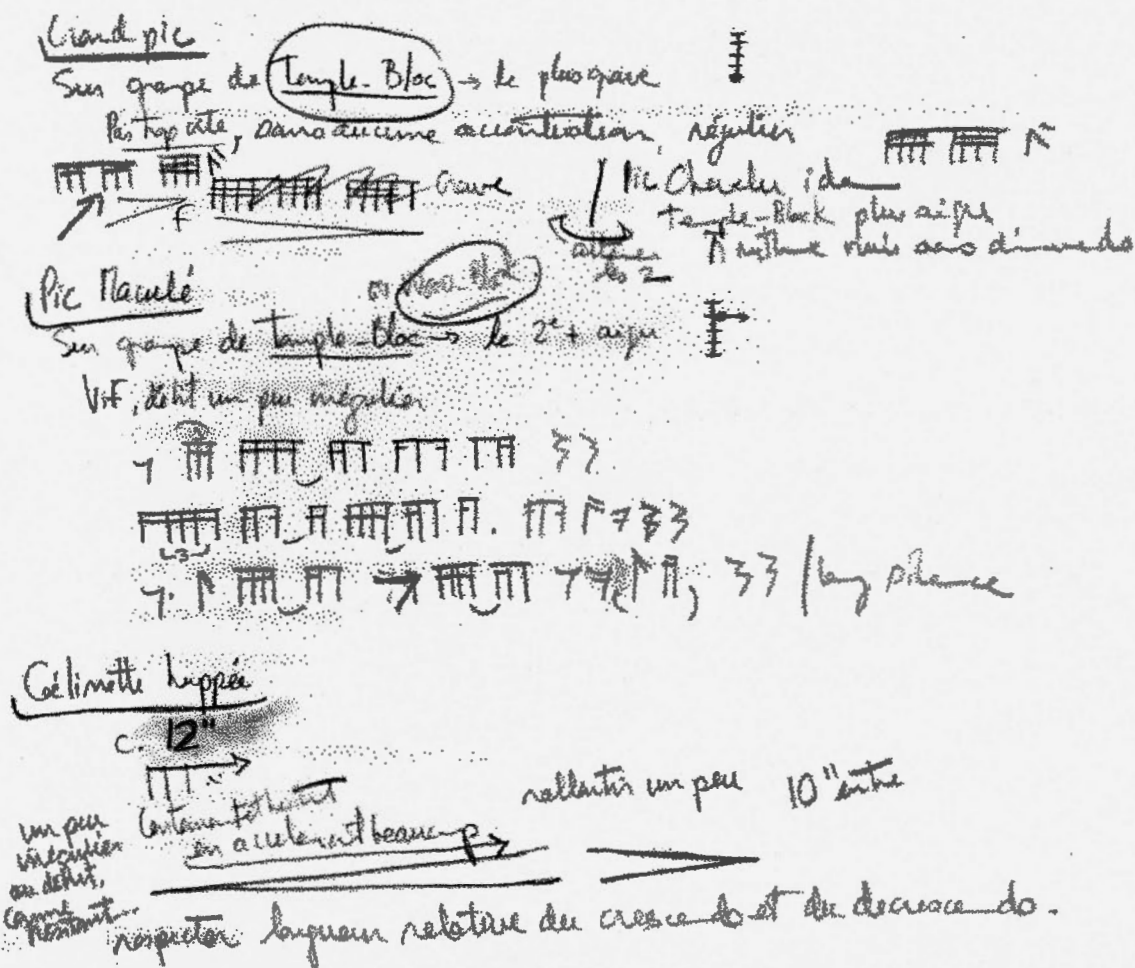 Grand pic
Sur groupe de Temple-Bloc → le plus grave
Pas trop vite, sans aucune accentuation, régulier
f grave
Pic Chevelu idem
Temple-Block plus aigu
rythme mais sans diminuendo
les 2
Pic Maculé
ou Wood Bloc
Sur groupe de temple-bloc → le 2e + aigu
Vif, débit un peu irrégulier
3
/ long silence
Gélinotte huppée
c. 12"
un peu irrégulier au début, comme hésitant..
en accelerant beaucoup
rallentir un peu 10" entre
respecter longueur relative du crescendo et du decrescendo.